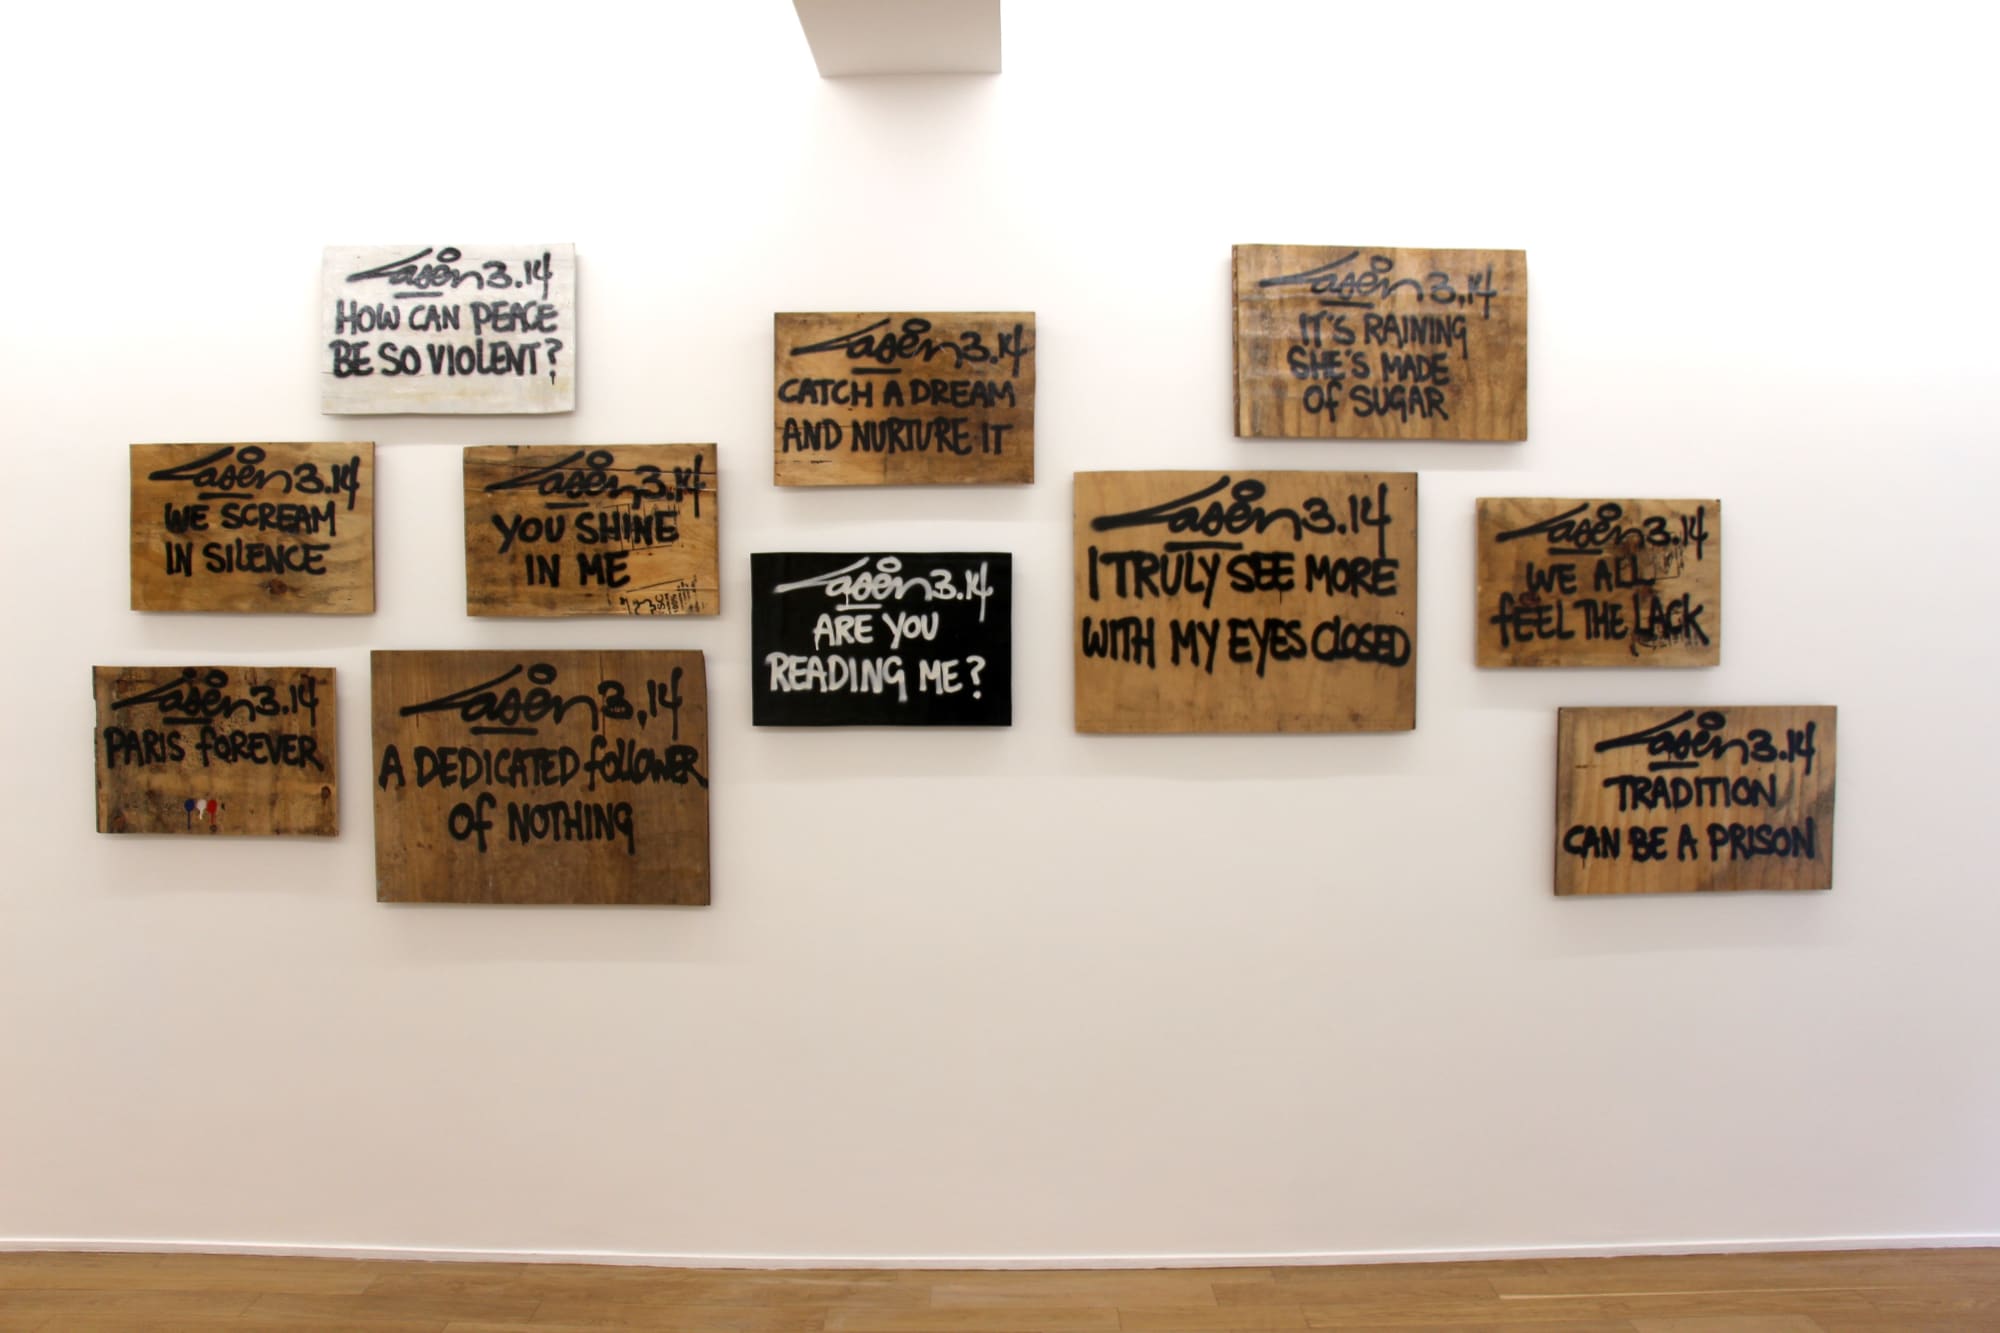 Laser 3.14
HOW CAN PEACE
BE SO VIOLENT?
Laser 3.14
WE SCREAM
IN SILENCE
Laser 3.14
YOU SHINE
IN ME
Laser 3.14
PARIS FOREVER
Laser 3.14
A DEDICATED FOLLOWER
OF NOTHING
Laser 3.14
CATCH A DREAM
AND NURTURE IT
Laser 3.14
ARE YOU
READING ME?
Laser 3.14
IT'S RAINING
SHE'S MADE
OF SUGAR
Laser 3.14
I TRULY SEE MORE
WITH MY EYES CLOSED
Laser 3.14
WE ALL
FEEL THE LACK
Laser 3.14
TRADITION
CAN BE A PRISON